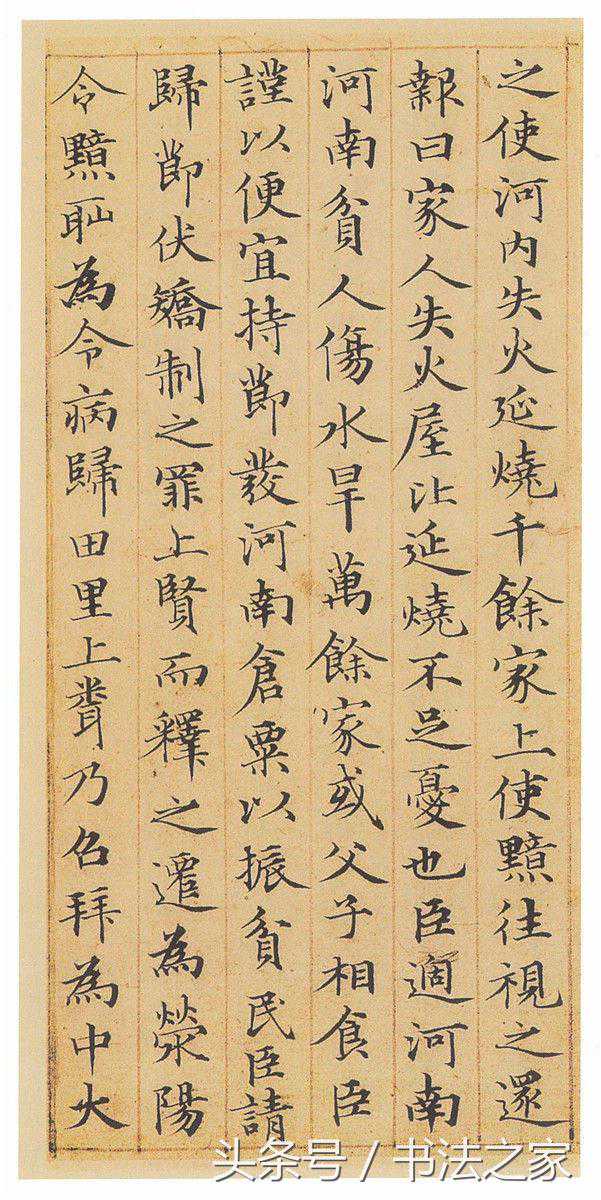 之使河內失火延燒千餘家上使黯往視之還
報曰家人失火屋比延燒不足憂也臣適河南
河南貧人傷水旱萬餘家或父子相食臣
謹以便宜持節發河南倉粟以振貧民臣請
歸節伏矯制之罪上賢而釋之遷為滎陽
令黯恥為令病歸田里上聞乃召拜為中大
头条号 / 书法之家